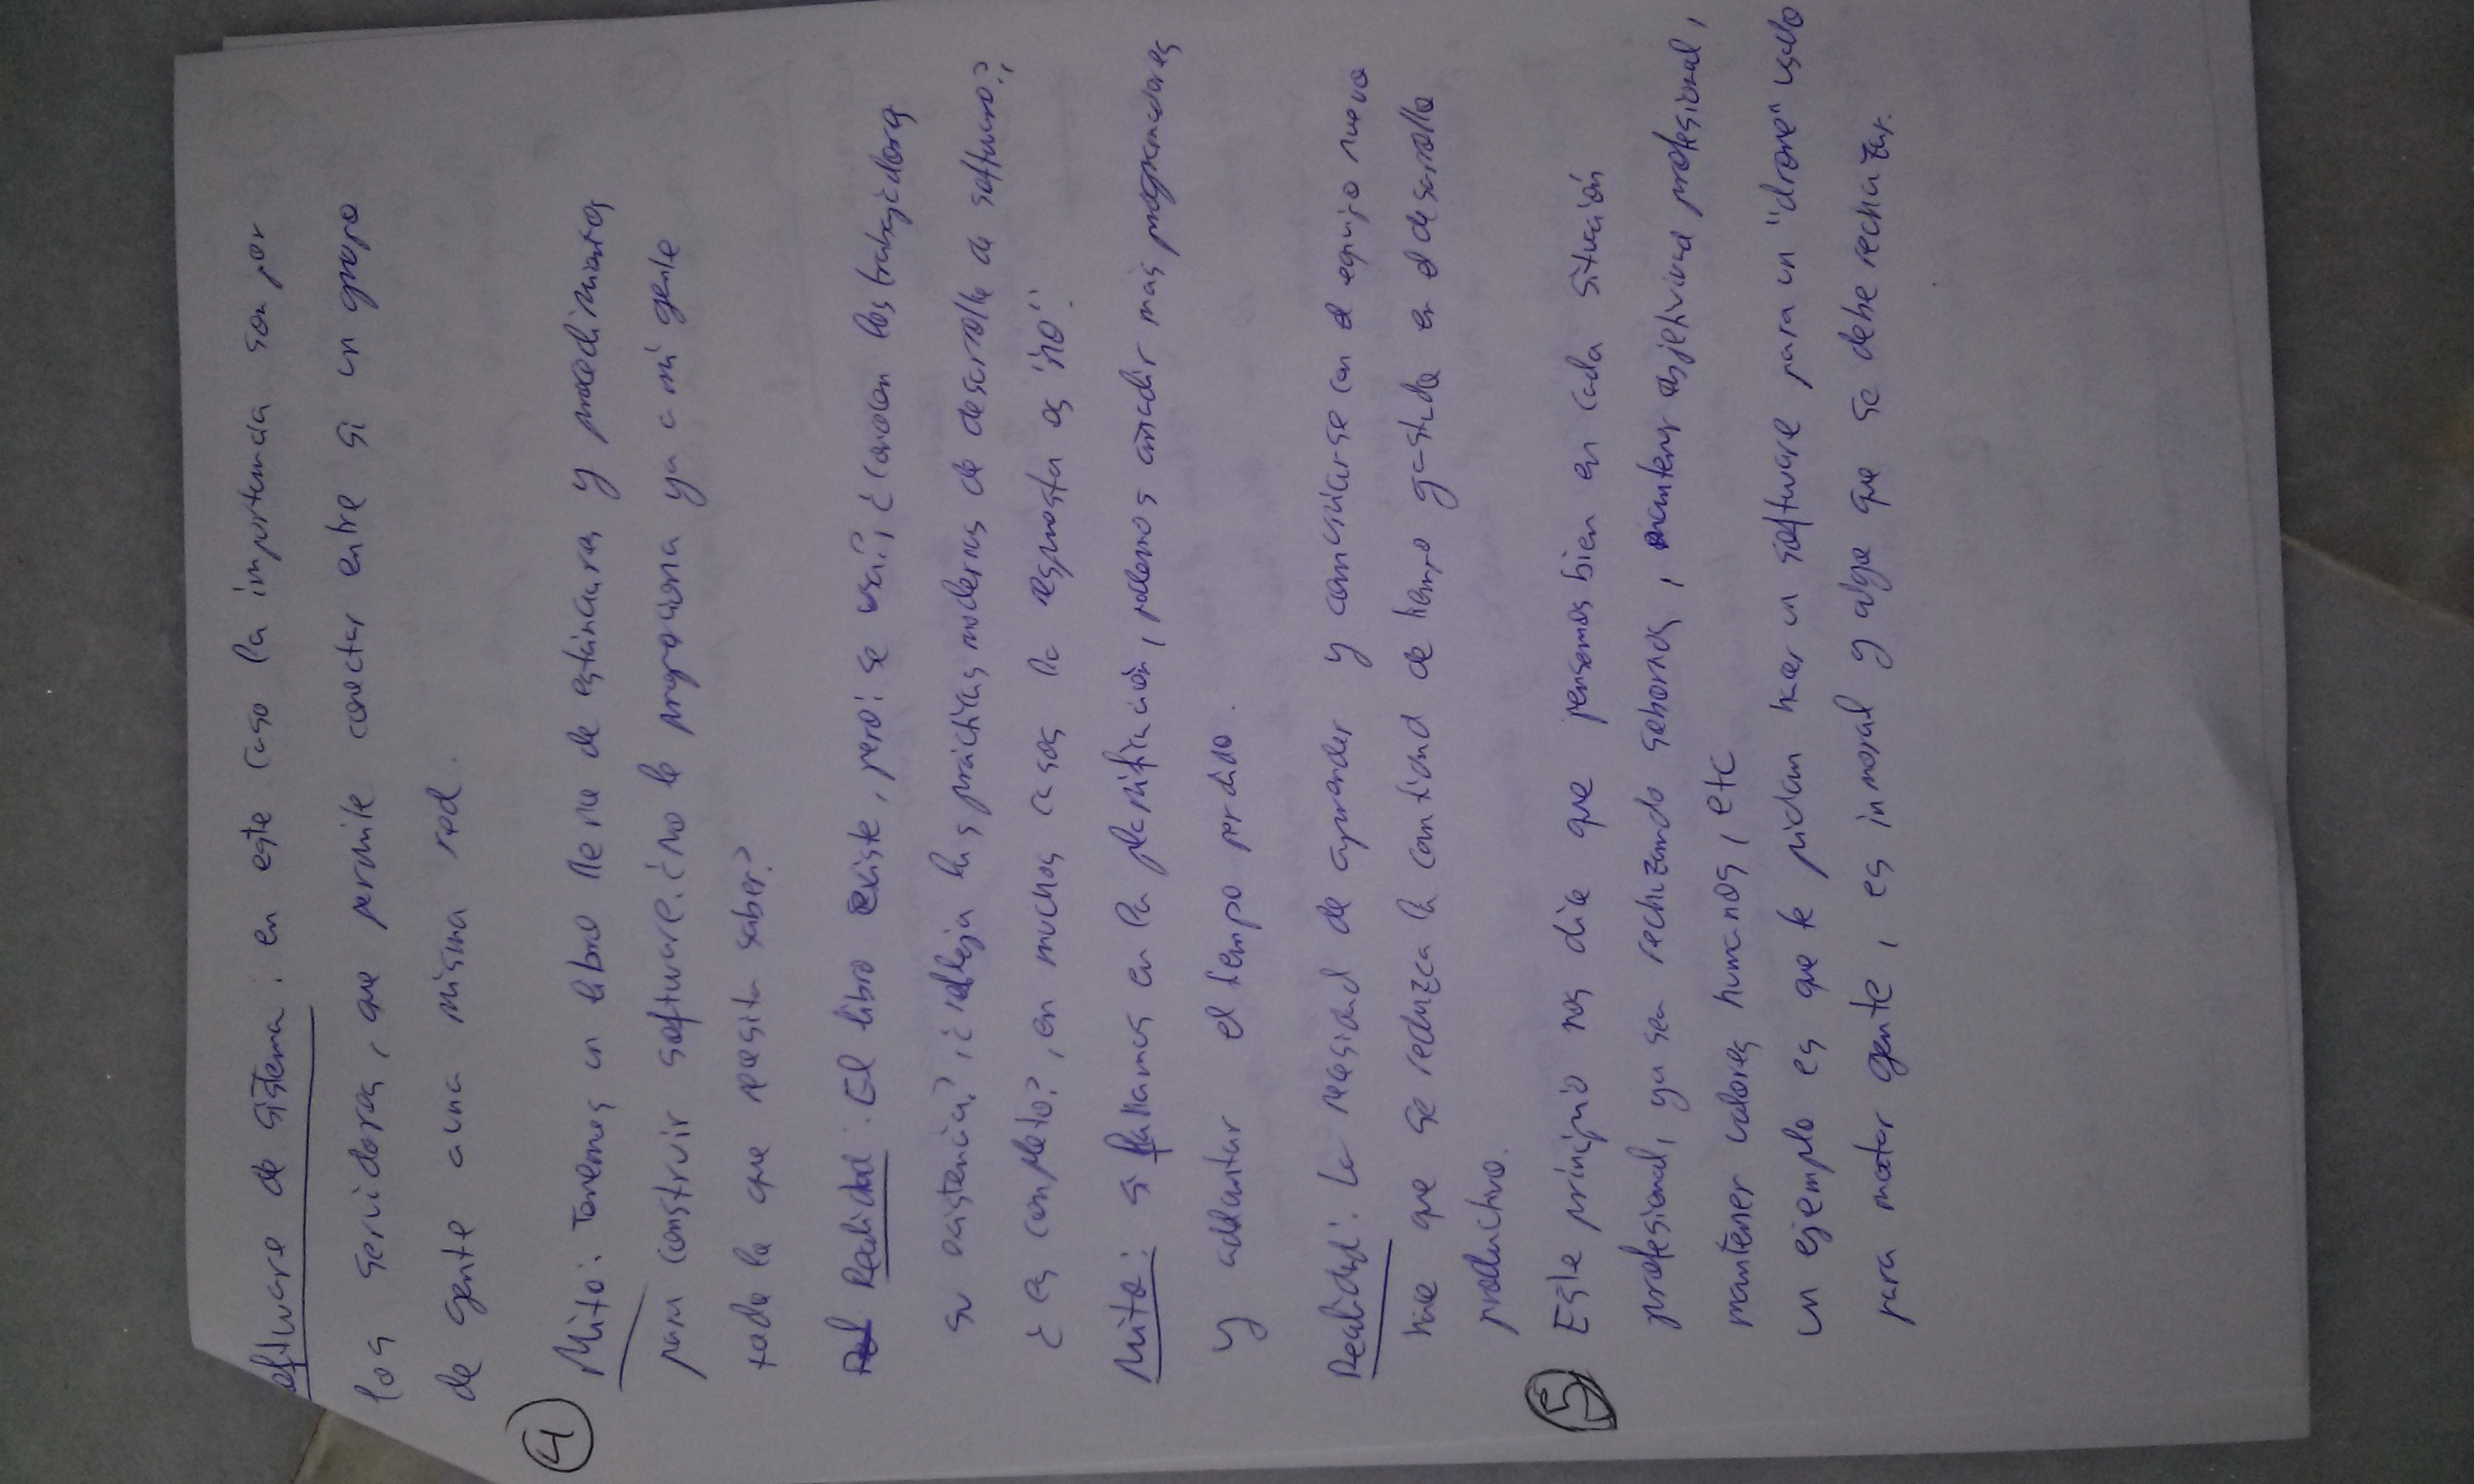 oftware de sistema: en este caso la importancia son por
los servidores, que permite conectar entre si un grupo
de gente a una misma red.
4
Mito: Tenemos un libro lleno de estándares y procedimientos
para construir software. ¿No le proporciona ya a mi gente
todo lo que necesita saber?
Realidad: El libro existe, pero: se usa?, ¿conocen los trabajadores
su existencia?, ¿refleja las prácticas modernas de desarrollo de software?,
¿es completo?, en muchos casos la respuesta es "no".
Mito: si fallamos en la planificación, podemos añadir más programadores
y adelantar el tiempo perdido.
Realidad: La necesidad de aprender y comunicarse con el equipo nuevo
hace que se reduzca la cantidad de tiempo gastado en el desarrollo
productivo.
5
Este principio nos dice que pensemos bien en cada situación
profesional, ya sea rechazando sobornos, mantener objetividad profesional,
mantener valores humanos, etc
un ejemplo es que te pidan hacer un software para un "drone" usado
para matar gente, es inmoral y algo que se debe rechazar.